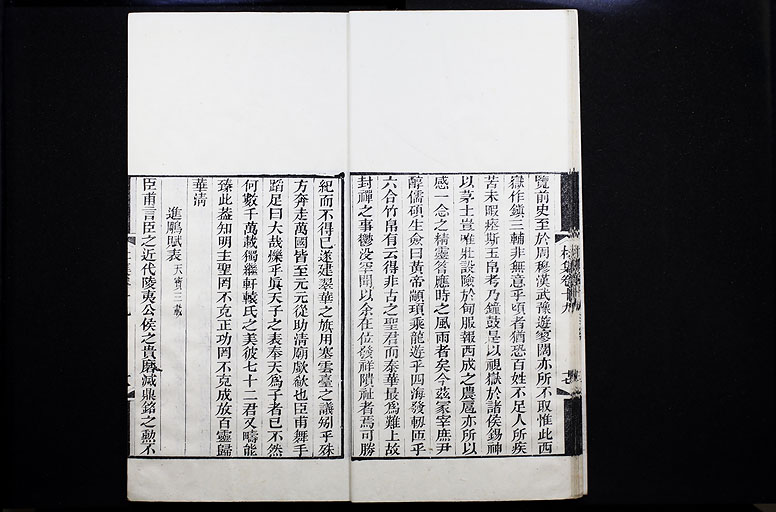 覽前史至於周穆漢武豫遊寥闊亦所不取惟此西
嶽作鎮三輔非無意乎頃者猶恐百姓不足人所疾
苦未暇瘞斯玉帛考乃鐘鼓是以視嶽於諸侯錫神
以茅土豈惟壯設險於甸服報西成之農扈亦所以
感一念之精靈答應時之風雨者矣今茲冢宰庶尹
醇儒碩生僉曰黃帝顓頊乘龍遊乎四海發軔匝乎
六合竹帛有云得非古之聖君而泰華最爲難上故
封禪之事鬱没罕聞以余在位發祥隤祉者焉可勝
紀而不得已遂建翠華之旗用塞雲臺之議矧乎殊
方奔走萬國皆至元元從助清廟歔欷也臣甫舞手
蹈足曰大哉爍乎真天子之表奉天爲子者已不然
何數千萬載獨繼軒轅氏之美彼七十二君又疇能
臻此蓋知明主聖罔不克正功罔不克成放百靈歸
華清
進鵰賦表 天寶三載
臣甫言臣之近代陵夷公侯之貴磨滅鼎銘之勳不